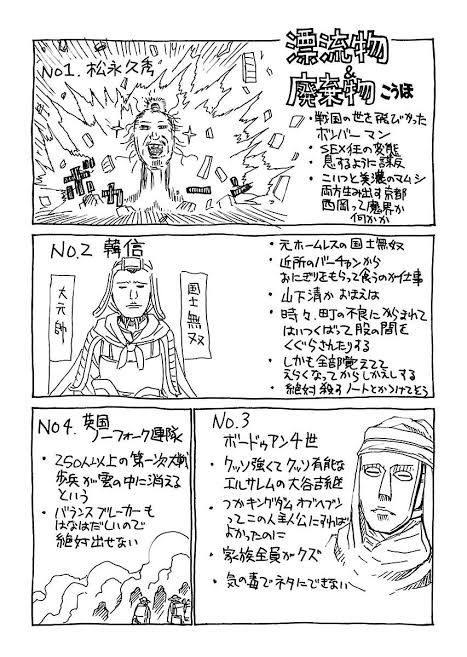 漂流物
&
廃棄物 こうほ
No1. 松永久秀
・戦国の世を飛びかった
ボンバーマン
・SEX狂の変態
・息するように謀反
・こいつと美濃のマムシ
両方生み出す京都
西岡って魔界か
何かか
No.2 韓信
大元帥
国士無双
・元ホームレスの国士無双
・近所のバーチャンから
おにぎりをもらって食うのが仕事
・山下清かおまえは
・時々、町の不良にからまれて
はいつくばって股の間を
くぐらされたりする
・しかも全部覚えてて
えらくなってからしかえしする
・絶対殺すノートとかつけてそう
No.3
ボードゥアン4世
・クッソ強くてクッソ有能な
エルサレムの大谷吉継
・つかキングダム オブ ヘブン
ってこの人主人公にすれば
よかったのに
・家族全員がクズ
・気の毒でネタにできない
No4. 英国
ノーフォーク連隊
・250人以上の第一次大戦
歩兵が雲の中に消える
という
・バランスブレーカーも
はなはだしいので
絶対出せない